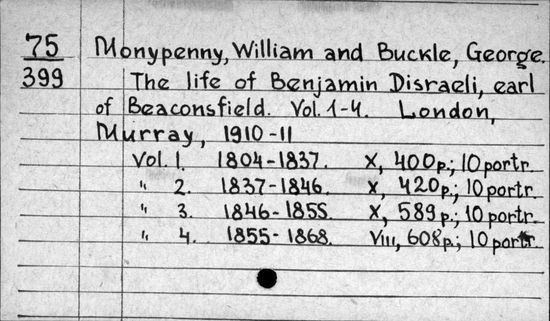 75 Monypenny, William and Buckle, George.
399 The life of Benjamin Disraeli, earl
of Beaconsfield. Vol. 1-4. London,
Murray, 1910-11
Vol. 1. 1804-1837. X, 400p.; 10 portr.
" 2. 1837-1846. X, 420p.; 10 portr.
" 3. 1846-1855. X, 589p.; 10 portr.
" 4. 1855-1868. VIII, 608p.; 10 portr.